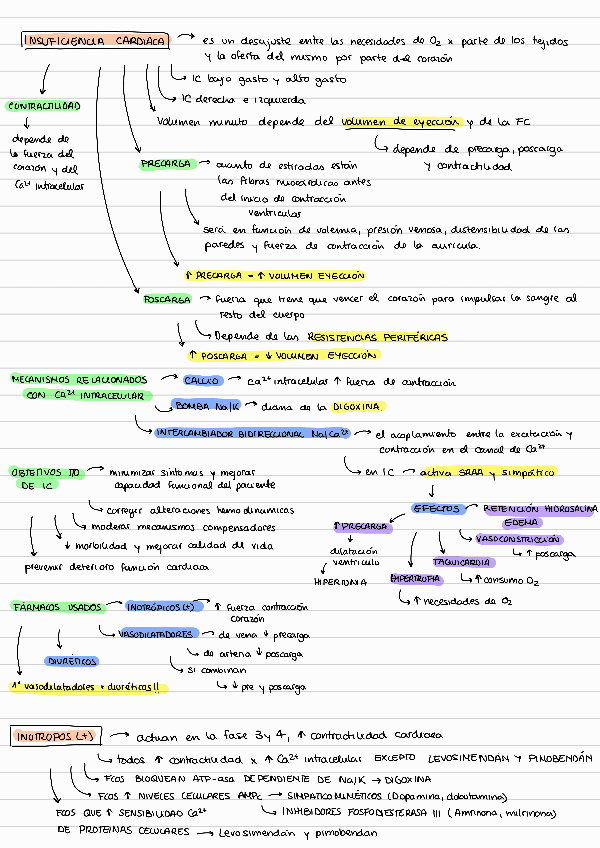 INSUFICIENCIA CARDIACA → es un desajuste entre las necesidades de O2 x parte de los tejidos
y la oferta del mismo por parte del corazón
↳ IC bajo gasto y alto gasto
↳ IC derecha e izquierda
CONTRACTILIDAD
Volumen minuto depende del volumen de eyección y de la FC
depende de
la fuerza del
corazón y del
Ca2+ intracelular
↳ depende de precarga, poscarga
y contractilidad
PRECARGA → cuanto de estiradas están
las fibras miocárdicas antes
del inicio de contracción
ventricular
será en función de volemia, presión venosa, distensibilidad de las
paredes y fuerza de contracción de la aurícula.
↑ PRECARGA = ↑ VOLUMEN EYECCIÓN
POSCARGA → fuerza que tiene que vencer el corazón para impulsar la sangre al
resto del cuerpo
↳ Depende de las RESISTENCIAS PERIFÉRICAS
↑ POSCARGA = ↓ VOLUMEN EYECCIÓN
MECANISMOS RELACIONADOS → CALCIO → Ca2+ intracelular ↑ fuerza de contracción
CON CA2+ INTRACELULAR → BOMBA Na/K → diana de la DIGOXINA.
INTERCAMBIADOR BIDIRECCIONAL Na/Ca2+ → el acoplamiento entre la excitación y
contracción en el canal de Ca2+
↳ en IC → activa SRAA y simpático
OBJETIVOS TTO → minimizar síntomas y mejorar
DE IC capacidad funcional del paciente
↳ corregir alteraciones hemodinámicas
↳ moderar mecanismos compensadores
↓ morbilidad y mejorar calidad de vida
prevenir deterioro función cardiaca
EFECTOS → RETENCIÓN HIDROSALINA
EDEMA
↑ PRECARGA
dilatación
ventrículo
HIPERTONIA
VASOCONSTRICCIÓN
↳ ↑ poscarga
TAQUICARDIA
↳ ↑ consumo O2
HIPERTROFIA
↳ ↑ necesidades de O2
FÁRMACOS USADOS → INOTRÓPICOS (+) → ↑ fuerza contracción
corazón
↳ VASODILATADORES → de vena ↓ precarga
↳ de arteria ↓ poscarga
↳ si combinan
↳ ↓ pre y poscarga
DIURÉTICOS
1º vasodilatadores + diuréticos!!
INOTROPOS (+) → actúan en la fase 3 y 4, ↑ contractilidad cardiaca
↳ todos ↑ contractilidad x ↑ Ca2+ intracelular EXCEPTO LEVOSIMENDAN Y PIMOBENDÁN
↳ FCOS BLOQUEAN ATP-asa DEPENDIENTE DE Na/K → DIGOXINA
FCOS ↑ NIVELES CELULARES AMPc → SIMPATICOMINÉTICOS (Dopamina, dobutamina)
↳ INHIBIDORES FOSFODIESTERASA III (Amrinona, milrinona)
FCOS QUE ↑ SENSIBILIDAD Ca2+
DE PROTEÍNAS CELULARES → Levosimendán y pimobendan